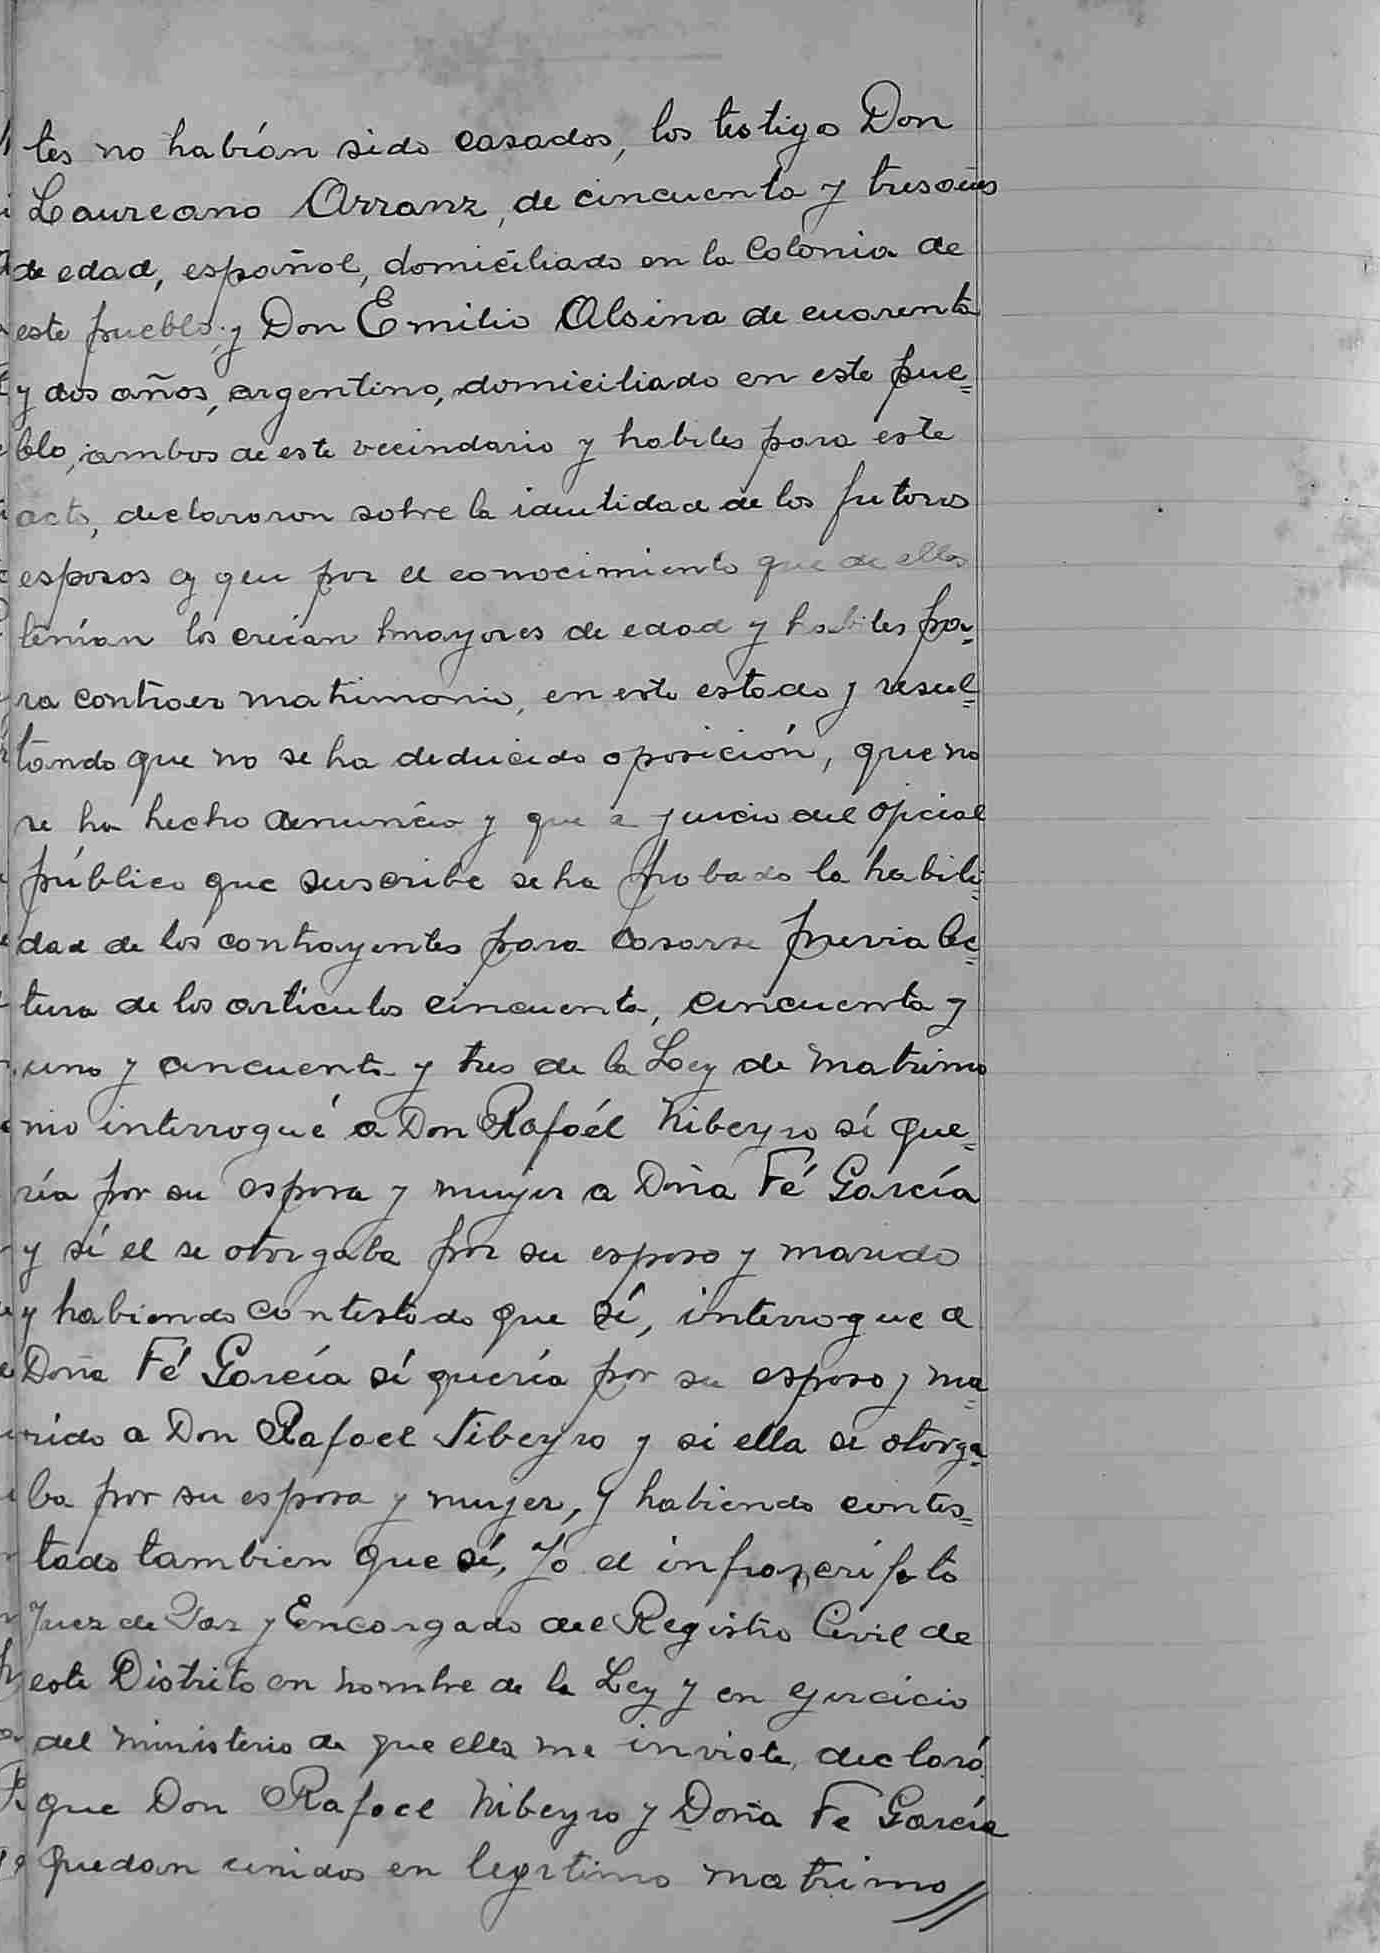 tes no habían sido casados, los testigos Don
Laureano Arranz, de cincuenta y tres años
de edad, español, domiciliado en la Colonia de
este pueblo; y Don Emilio Alsina de cuarenta
y dos años, argentino, domiciliado en este pue=
blo, ambos de este vecindario y habiles para este
acto, declararon sobre la identidad de los futuros
esposos y que por el conocimiento que de ellos
tenían los creían mayores de edad y habiles pa=
ra contraer matrimonio, en este estado y resul=
tando que no se ha deducido oposición, que no
se ha hecho denuncia y que a juicio del oficial
público que suscribe se ha probado la habili=
dad de los contrayentes para casarse previa lec=
tura de los artículos cincuenta, cincuenta y
uno y cincuenta y tres de la Ley de Matrimo
nio interrogué a Don Rafaél Nibeyro sí que=
ría por su esposa y mujer a Doña Fé García
y sí el se otorgaba por su esposo y marido
y habiendo contestado que sí, interrogue a
Doña Fé García sí quería por su esposo y ma=
rido a Don Rafael Nibeyro y si ella se otorga=
ba por su esposa y mujer, y habiendo contes=
tado tambien que sí, Yo el infrascripto
Juez de Paz y Encargado del Registro Civil de
este Distrito en nombre de la Ley y en ejercicio
del ministerio de que ella me inviste, declaró
que Don Rafael Nibeyro y Doña Fe García
quedan unidos en legitimo matrimo//